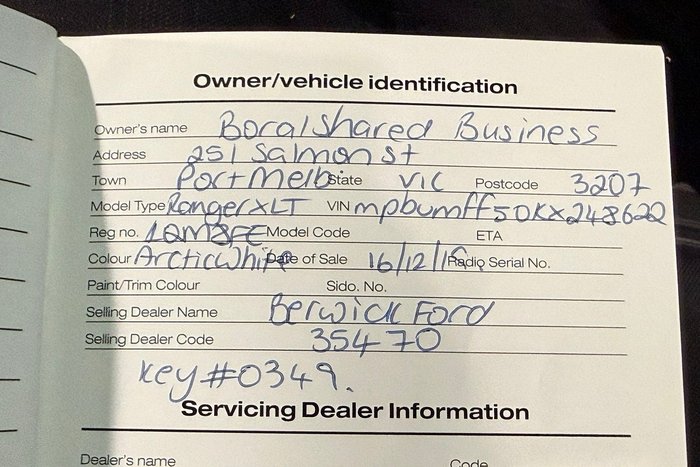 Owner/vehicle identification
Owner's name Boral Shared Business
Address 251 Salmon St
Town Port Melb State VIC Postcode 3207
Model Type Ranger XLT VIN mpbumff50KX248622
Reg no. 1QM3FE Model Code ETA
Colour Arctic White Date of Sale 16/12/19 Radio Serial No.
Paint/Trim Colour Sido. No.
Selling Dealer Name Berwick Ford
Selling Dealer Code 35470
Key #0349.
Servicing Dealer Information
Dealer's name Code